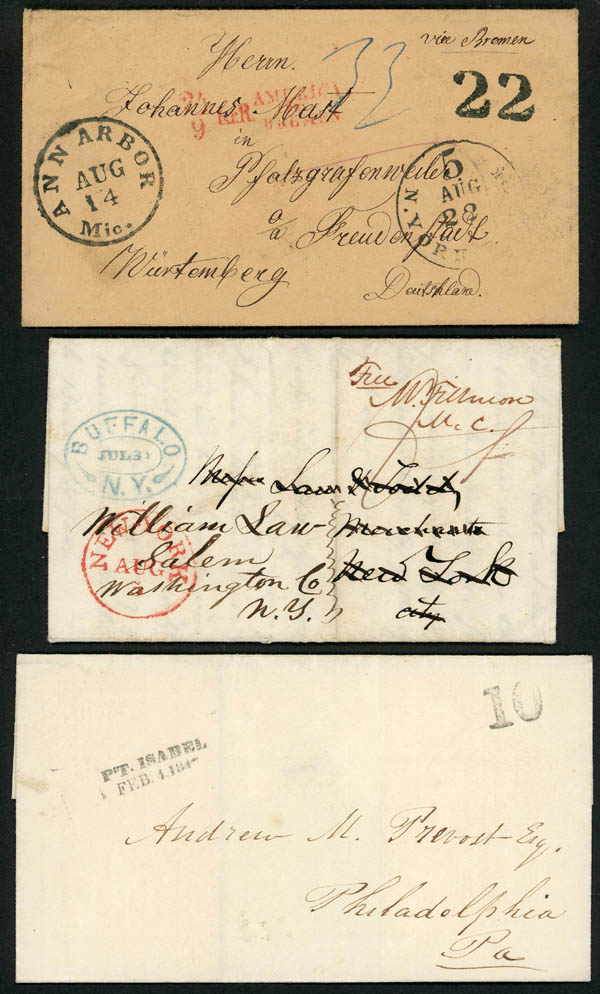 via Bremen
Herrn.
33
22
Johannes Mast
AMERICA
BREMEN
in
Pfalzgrafenweiler
a/a Freudenstadt
Würtemberg
Deutschland.
ANN ARBOR
AUG
14
Mic.
N. YORK
5
AUG
28
Free
M. Fillmore
M.C.
5
BUFFALO
JUL 31
N.Y.
Messrs Law
William Law
Merchants
Salem
New York
Washington Co
city
N.Y.
NEW YORK
AUG
10
PT. ISABEL
FEB. 4. 184
Andrew M. Prevost Esq.
Philadelphia
Pa